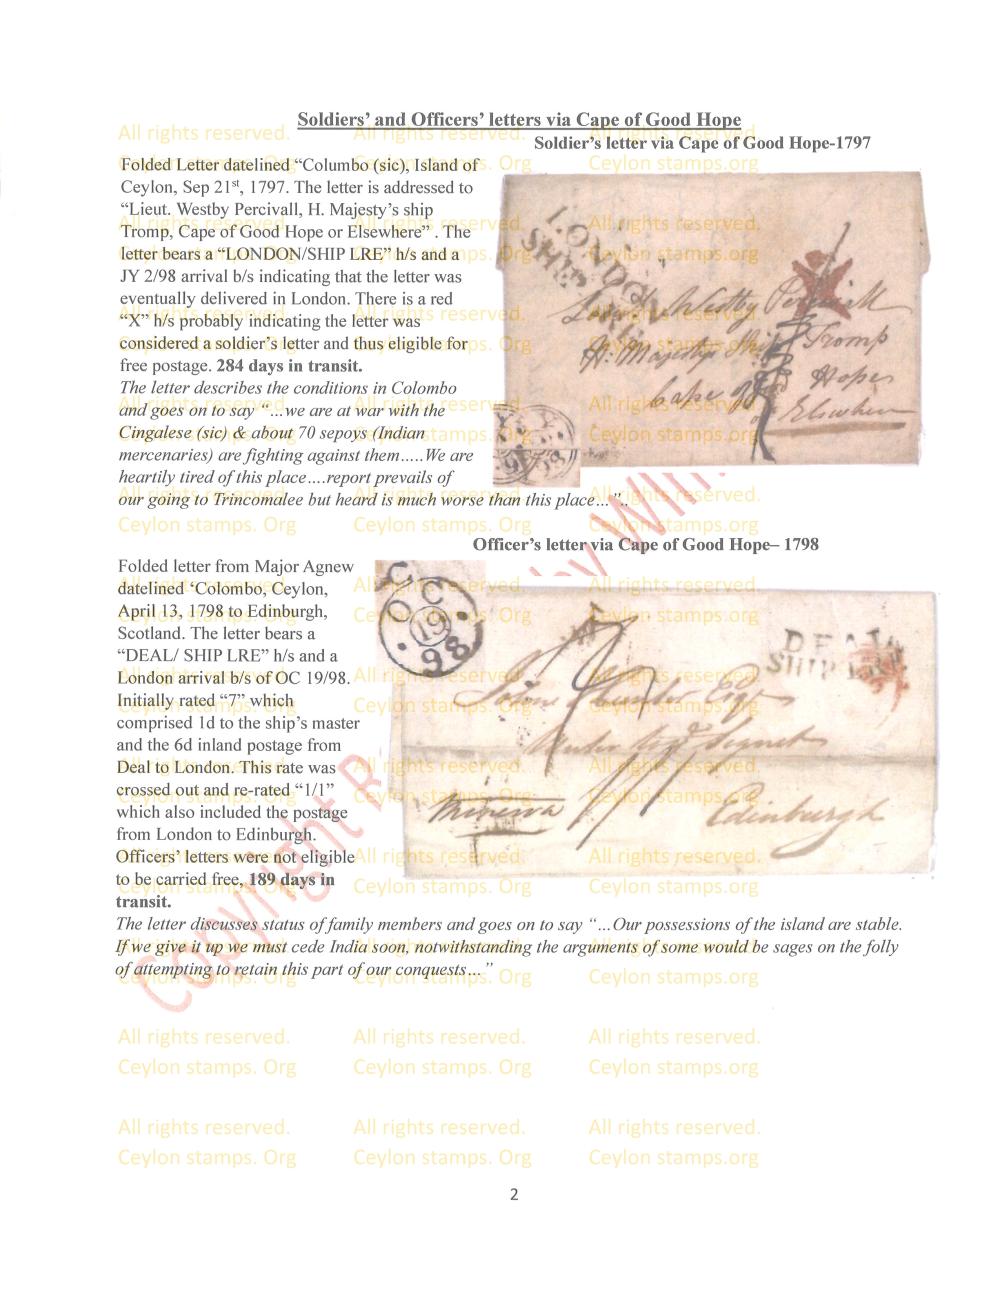 Soldiers' and Officers' letters via Cape of Good Hope
Soldier's letter via Cape of Good Hope-1797
Folded Letter datelined “Columbo (sic), Island of
Ceylon, Sep 21st, 1797. The letter is addressed to
“Lieut. Westby Percivall, H. Majesty's ship
Tromp, Cape of Good Hope or Elsewhere” . The
letter bears a “LONDON/SHIP LRE” h/s and a
JY 2/98 arrival b/s indicating that the letter was
eventually delivered in London. There is a red
“X” h/s probably indicating the letter was
considered a soldier's letter and thus eligible for
free postage. 284 days in transit.
The letter describes the conditions in Colombo
and goes on to say “...we are at war with the
Cingalese (sic) & about 70 sepoys (Indian
mercenaries) are fighting against them.....We are
heartily tired of this place....report prevails of
our going to Trincomalee but heard is much worse than this place...”..
LONDON
SHIP LRE
Westby Percivall
H. Majestys Ship Tromp
Cape of Good Hope
Elsewhere
Officer's letter via Cape of Good Hope– 1798
Folded letter from Major Agnew
datelined ‘Colombo, Ceylon,
April 13, 1798 to Edinburgh,
Scotland. The letter bears a
“DEAL/ SHIP LRE” h/s and a
London arrival b/s of OC 19/98.
Initially rated “7” which
comprised 1d to the ship's master
and the 6d inland postage from
Deal to London. This rate was
crossed out and re-rated “1/1”
which also included the postage
from London to Edinburgh.
Officers' letters were not eligible
to be carried free, 189 days in
transit.
OC
19
98
DEAL
SHIP LRE
Esqr
Signet
Edinburgh
Minerva
The letter discusses status of family members and goes on to say “...Our possessions of the island are stable.
If we give it up we must cede India soon, notwithstanding the arguments of some would be sages on the folly
of attempting to retain this part of our conquests...”
All rights reserved. All rights reserved. All rights reserved.
Ceylon stamps. Org Ceylon stamps. Org Ceylon stamps.org
All rights reserved. All rights reserved. All rights reserved.
Ceylon stamps. Org Ceylon stamps. Org Ceylon stamps.org
2